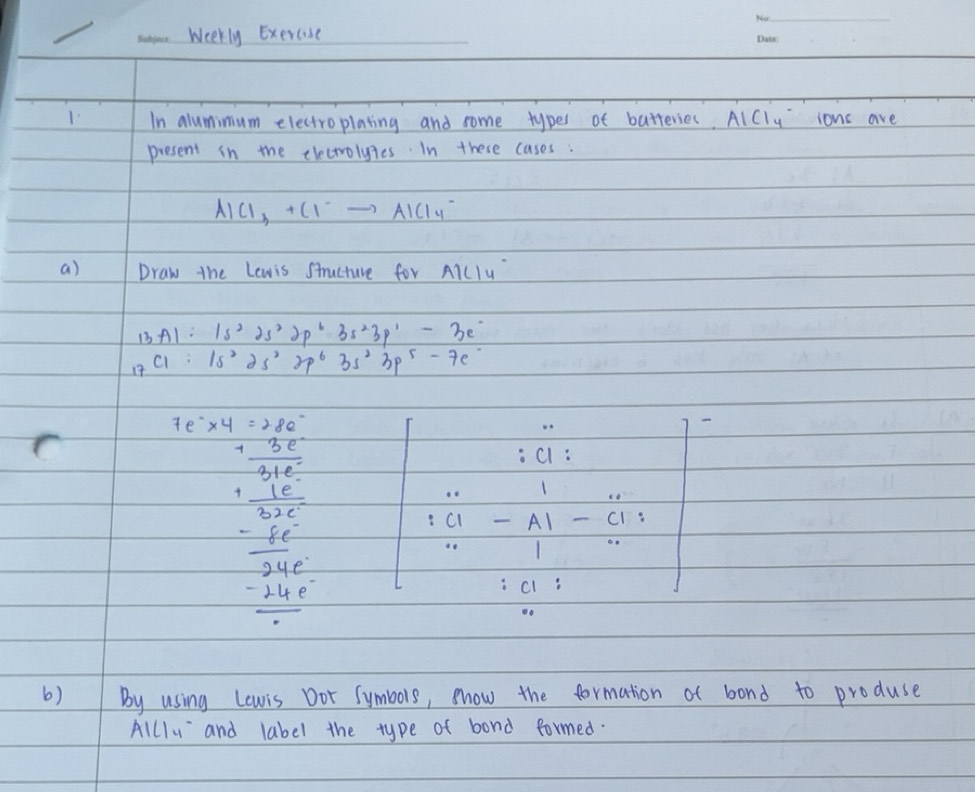 No:
Subject: Weekly Exercise
Date:
1. In aluminium electroplating and some types of batteries, AlCl4⁻ ions are
present in the electrolytes. In these cases:
AlCl3 + Cl⁻ → AlCl4⁻
a) Draw the Lewis Structure for AlCl4⁻
13Al: 1s² 2s² 2p⁶ 3s² 3p¹ - 3e⁻
17Cl: 1s² 2s² 2p⁶ 3s² 3p⁵ - 7e⁻
7e⁻ × 4 = 28e⁻
+ 3e⁻
31e⁻
+ 1e⁻
32e⁻
- 8e⁻
24e⁻
- 24e⁻
.
[ ]⁻
: Cl :
|
: Cl - Al - Cl :
|
: Cl :
b) By using Lewis Dot Symbols, show the formation of bond to produse
AlCl4⁻ and label the type of bond formed.